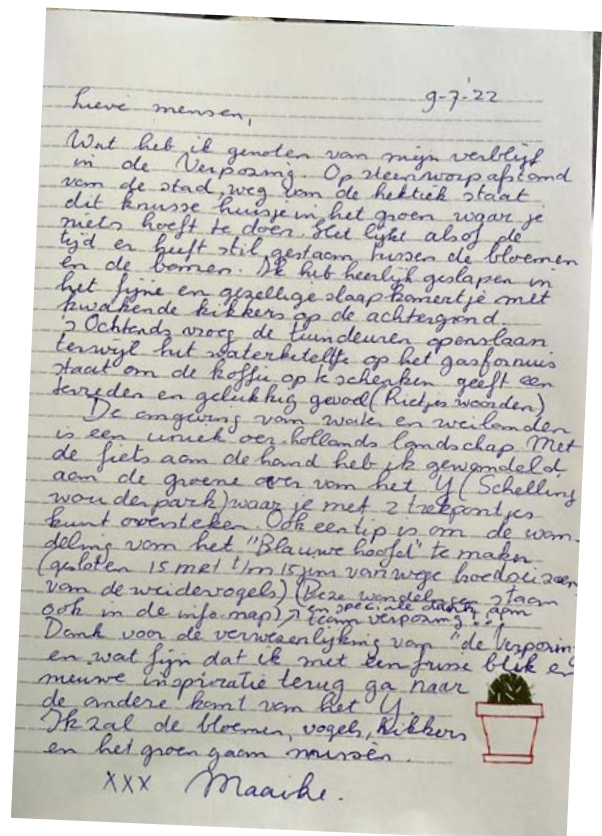 9-7-'22
Lieve mensen,
Wat heb ik genoten van mijn verblijf
in de Verpozing. Op steenworp afstand
van de stad, weg van de hektiek staat
dit knusse huisje in het groen waar je
niets hoeft te doen. Het lijkt alsof de
tijd er heeft stil gestaan tussen de bloemen
en de bomen. Ik heb heerlijk geslapen in
het fijne en gezellige slaapkamertje met
kwakende kikkers op de achtergrond.
's Ochtends vroeg de tuindeuren openslaan
terwijl het waterketeltje op het gasfornuis
staat om de koffie op te schenken geeft een
tevreden en gelukkig gevoel (Rietjes woorden)
De omgeving van water en weilanden
is een uniek oer hollands landschap. Met
de fiets aan de hand heb ik gewandeld
aan de groene oever van het Y (Schelling
wouderpark) waar je met 2 trekpontjes
kunt oversteken. Ook een tip is om de wan-
deling van het "Blauwe hoofd" te maken
(gesloten 15 mrt t/m 15 jun vanwege broedseizoen
van de weidevogels) (Deze wandelingen staan
ook in de info map) → en speciale dank aan
team verpozing...
Dank voor de verwezenlijking van "de Verpozin
en wat fijn dat ik met een frisse blik en
nieuwe inspiratie terug ga naar
de andere kant van het Y.
Ik zal de bloemen, vogels, kikkers
en het groen gaan missen.
xxx Maaike.